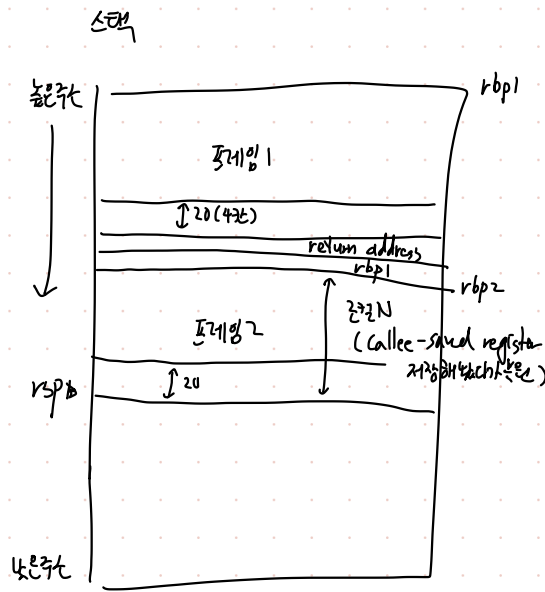 스택
높은주소
rbp1
프레임1
20(4칸)
return address
rbp1
rbp2
로컬N
(callee-saved register
저장해놨다가 복원)
프레임2
20
rsp
낮은주소